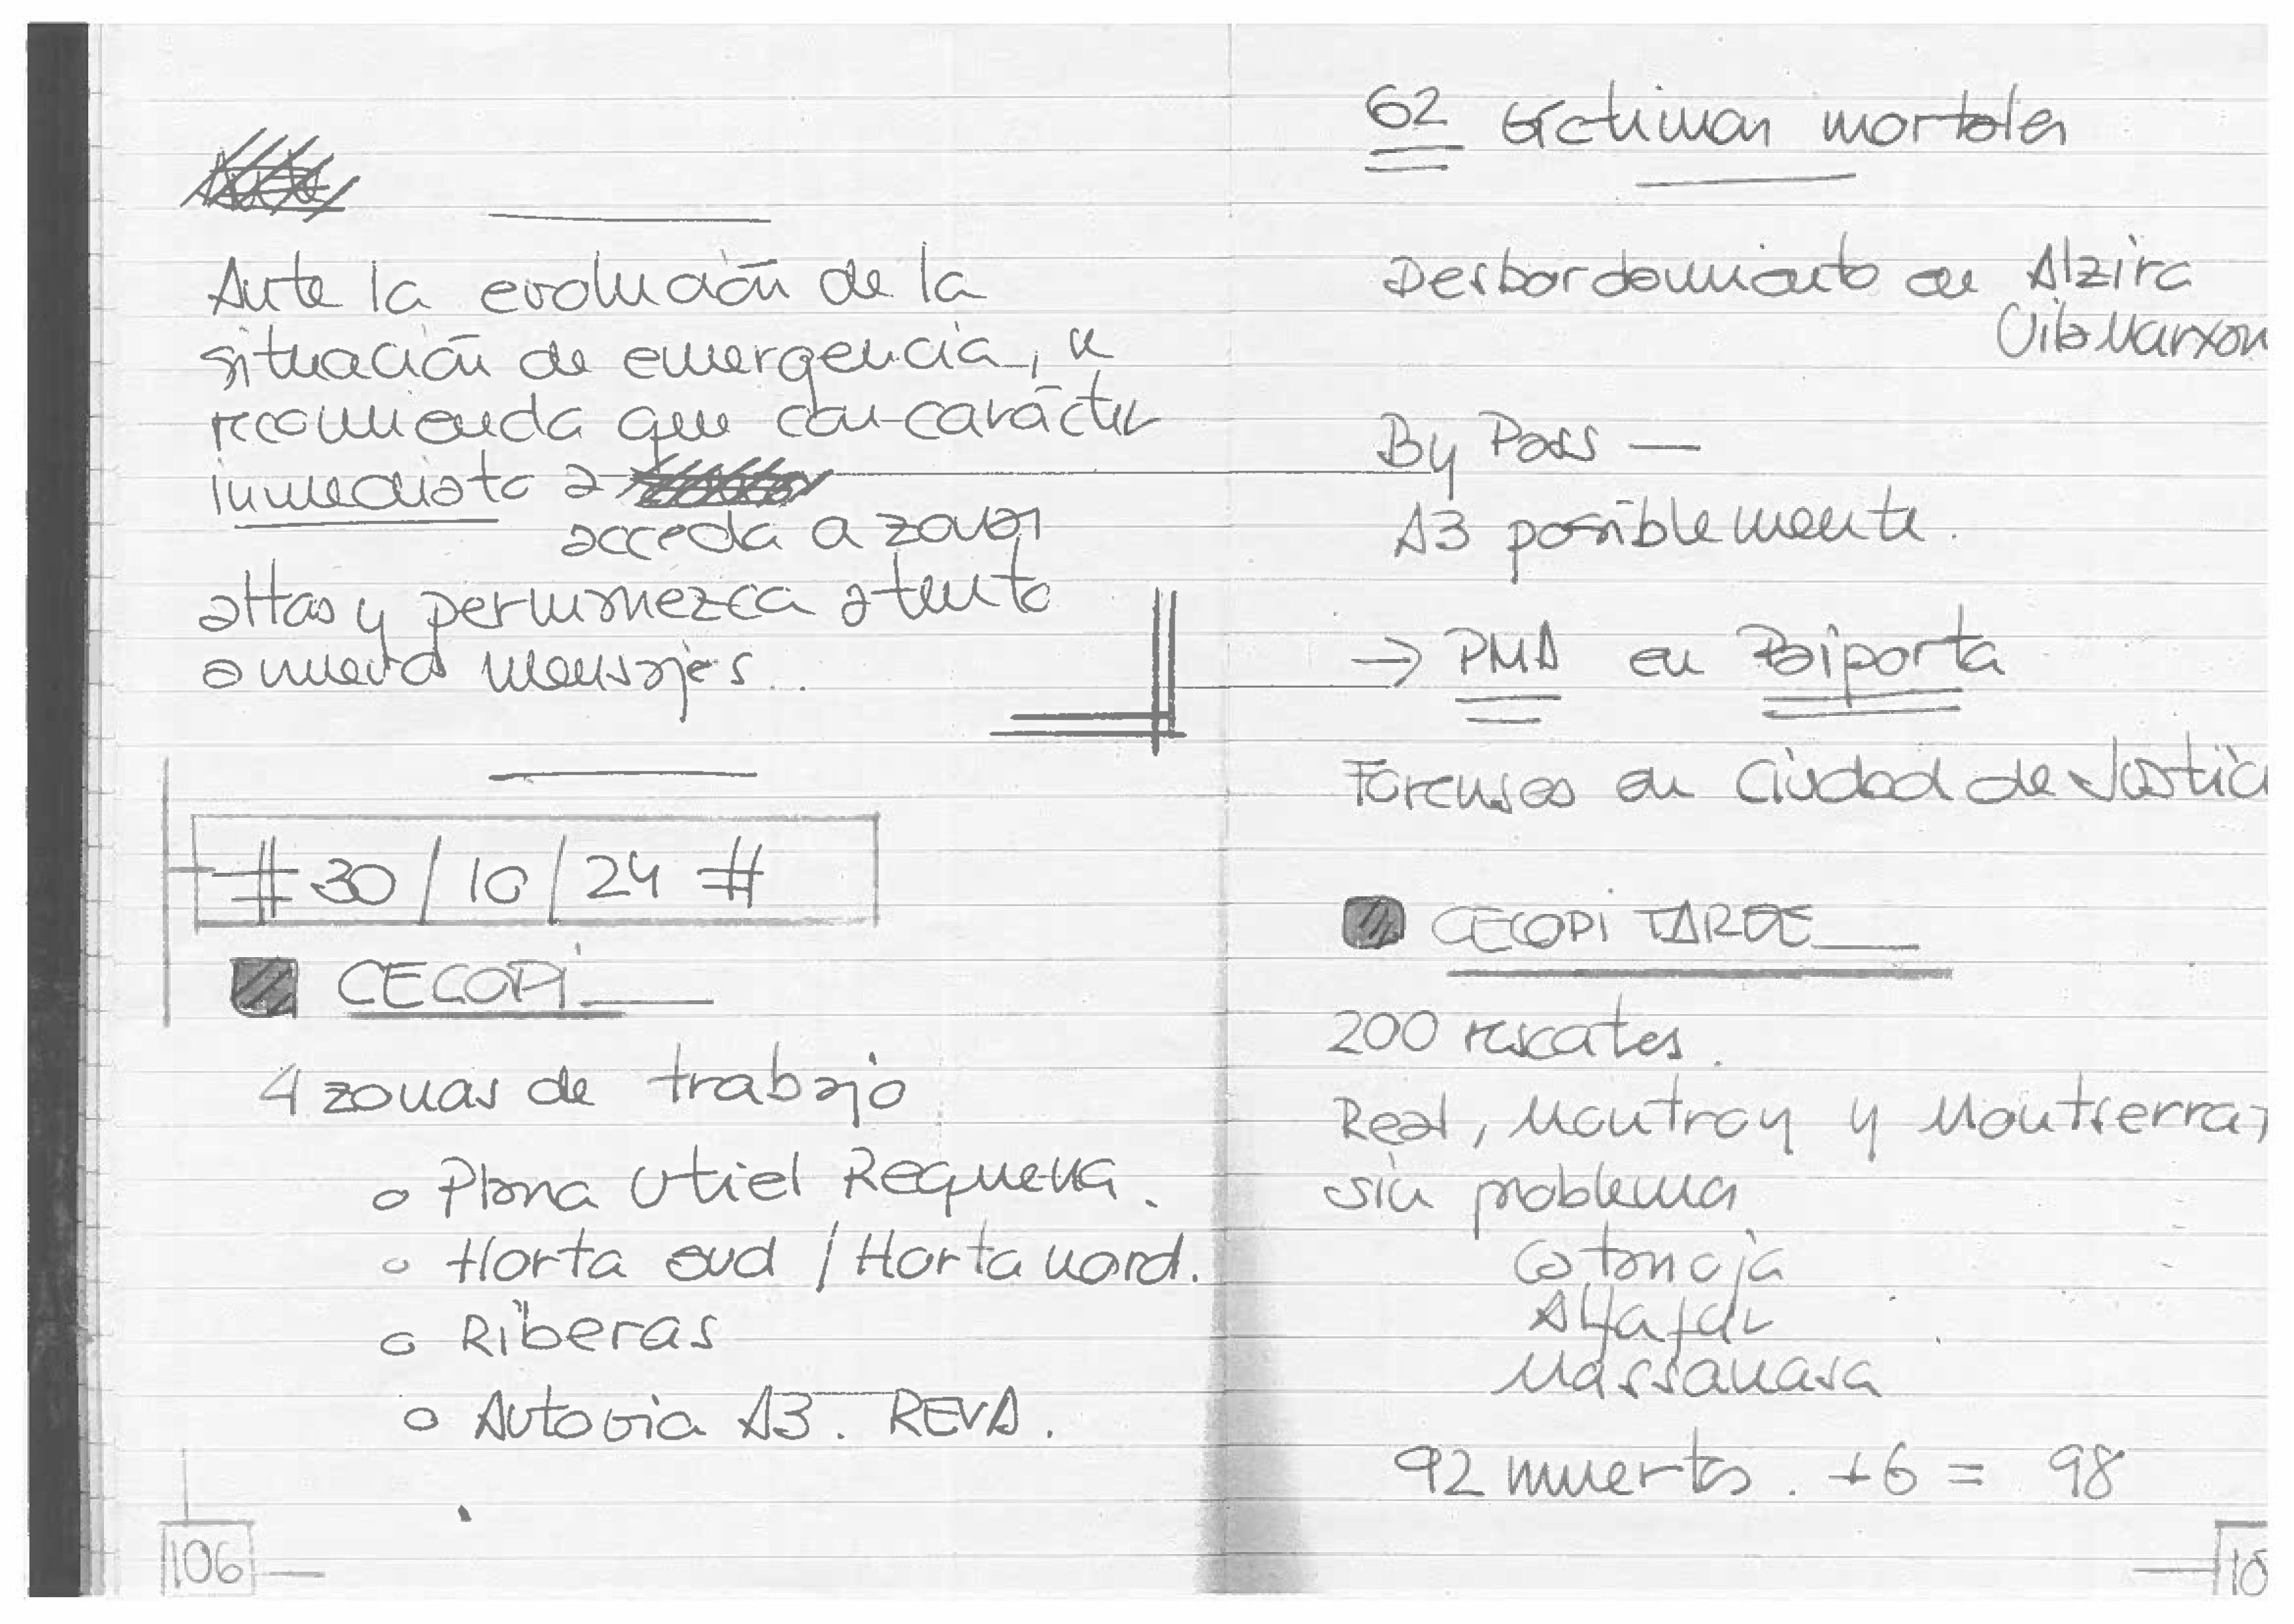 Ante la evolución de la
situación de emergencia, se
recomienda que con carácter
inmediato a
acceda a zonas
altas y permanezca atento
a nuevos mensajes...
# 30 / 10 / 24 #
CECOPI
4 zonas de trabajo
o Plana Utiel Requena.
o Horta sud / Horta nord.
o Riberas
o Autovia A3. REVA.
106
62 víctimas mortales
Desbordamiento en Alzira
By Pass —
A3 posiblemente.
→ PMA en Paiporta
Forenses en Ciudad de Justic
CECOPI TARDE
200 rescates.
Real, Montroy y Montserrat
sin problemas
Catarroja
Alfafar
Massanasa
92 muertos. +6 = 98
10